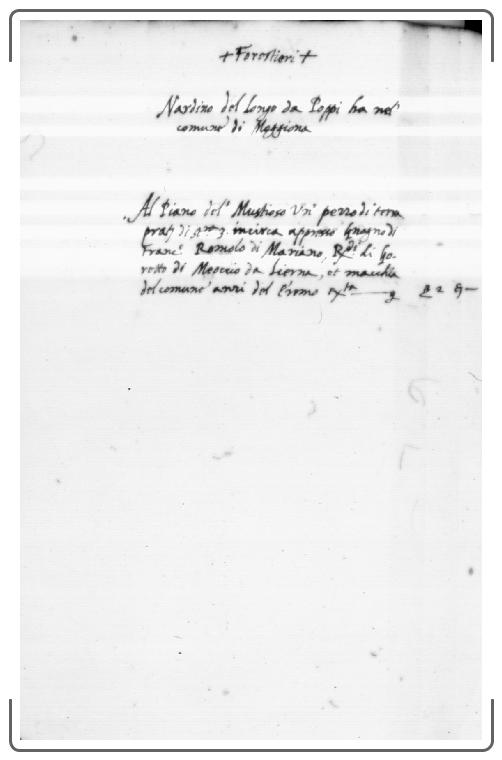 + Forestieri +
Nardino del Longo da Poppi ha nel
comune di Moggiona
Al Piano del Mustioso un pezzo di terra
di incirca appresso di
Franc.º Romolo di Mariano, di
di Meuccio da Lierna, et macchia
del comune anzi del Eremo 2